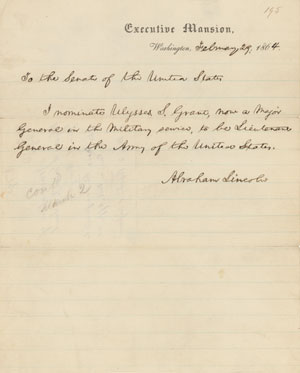 195
Executive Mansion,
Washington, February 29, 1864.
To the Senate of the United States
I nominate Ulysses S. Grant, now a Major
General in the Military service, to be Lieutenant
General in the Army of the United States.
Abraham Lincoln
March 2